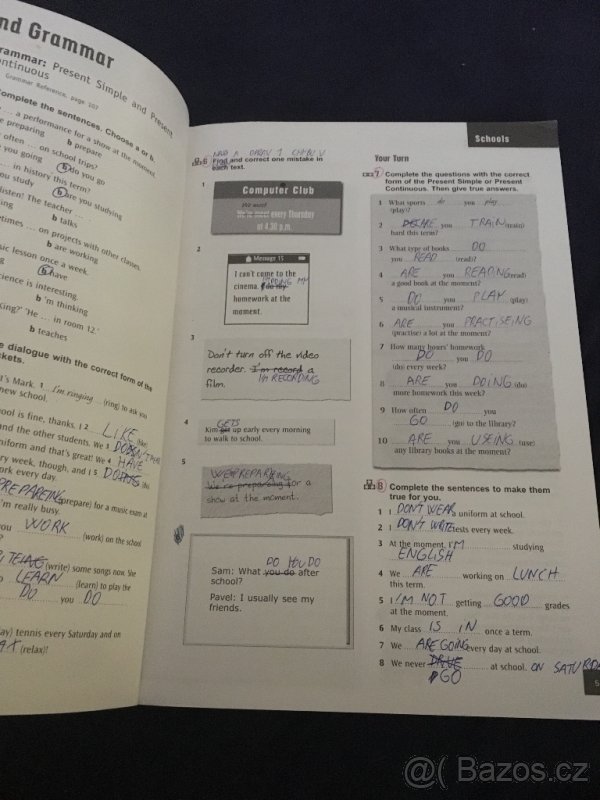 nd Grammar
rammar: Present Simple and Present
ontinuous
Grammar Reference, page 107
omplete the sentences. Choose a or b.
... a performance for a show at the moment.
e preparing b prepare
often ... on school trips?
you going b do you go
... in history this term?
you study b are you studying
listen! The teacher ...
b talks
etimes ... on projects with other classes.
b are working
sic lesson once a week.
b have
cience is interesting.
b 'm thinking
king?' 'He ... in room 12.'
b teaches
e dialogue with the correct form of the
ckets.
t's Mark. 1 I'm ringing (ring) to ask you
new school.
ool is fine, thanks. I 2 LIKE (like)
and the other students. We 3
niform and that's great! We 4 HAVE
ry week, though, and I 5 DOING (do)
ork every day.
PREPAREING (prepare) for a music exam at
I'm really busy.
you WORK (work) on the school
?
(write) some songs now. She
LEARN (learn) to play the
DO you DO
(play) tennis every Saturday and on
(relax)!
Schools
6 Find and correct one mistake in
each text.
1
Computer Club
We meet
We're meet every Thursday
at 4.30 p.m.
2
Message 15
I can't come to the
cinema. I do my
homework at the
moment.
3
Don't turn off the video
recorder. I'm record a
film.
I'M RECORDING
4
GETS
Kim get up early every morning
to walk to school.
5
We're preparing for a
show at the moment.
DO YOU DO
Sam: What you do after
school?
Pavel: I usually see my
friends.
Your Turn
7 Complete the questions with the correct
form of the Present Simple or Present
Continuous. Then give true answers.
1 What sports do you play
(play)?
2 ARE you TRAIN (train)
hard this term?
3 What type of books DO
you READ (read)?
4 ARE you READING (read)
a good book at the moment?
5 DO you PLAY (play)
a musical instrument?
6 ARE you PRACTISEING
(practise) a lot at the moment?
7 How many hours' homework
DO you DO
(do) every week?
8 ARE you DOING (do)
more homework this week?
9 How often DO you
GO (go) to the library?
10 ARE you USEING (use)
any library books at the moment?
8 Complete the sentences to make them
true for you.
1 I DON'T WEAR a uniform at school.
2 I DON'T WRITE tests every week.
3 At the moment, I'M studying
ENGLISH
4 We ARE working on LUNCH
this term.
5 I I'M NOT getting GOOD grades
at the moment.
6 My class IS IN once a term.
7 We ARE GOING every day at school.
8 We never DRIVE at school. ON SATURDA
GO
5
@( Bazos.cz